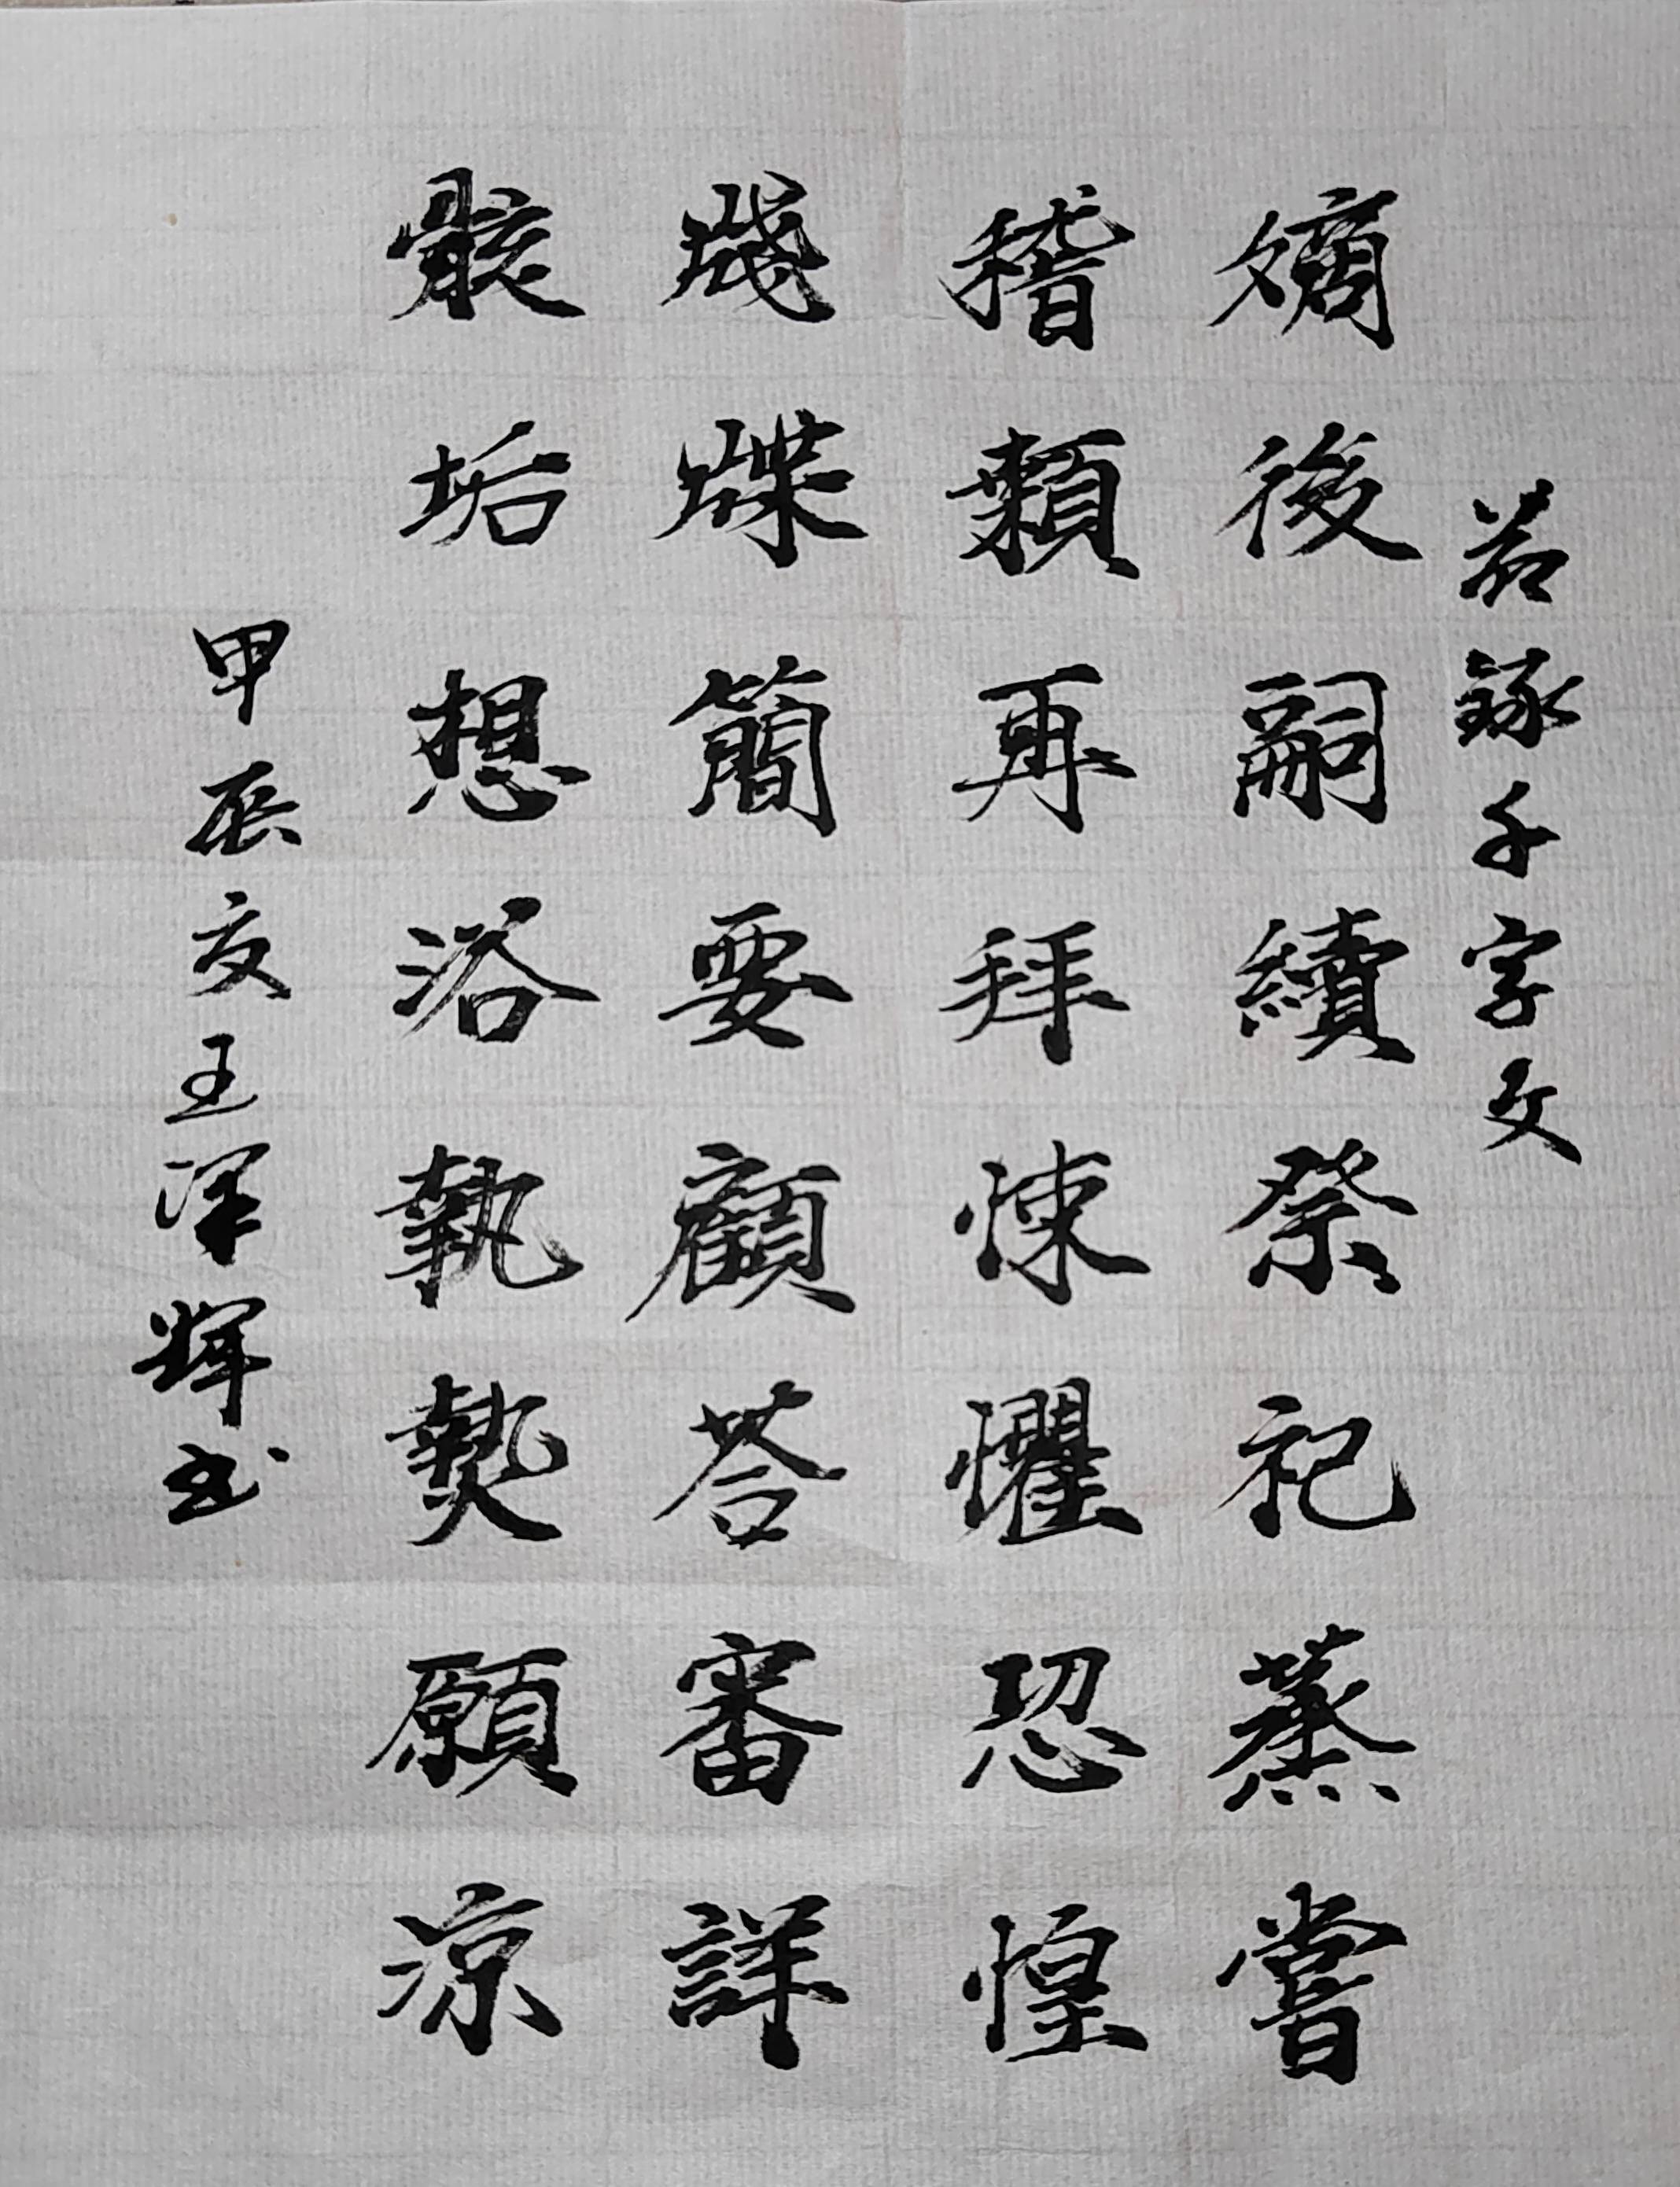 节録千字文
嫡後嗣續祭祀蒸嘗
稽顙再拜悚懼恐惶
牋牒簡要顧荅審詳
骸垢想浴執熱願涼
甲辰夏王泽輝书